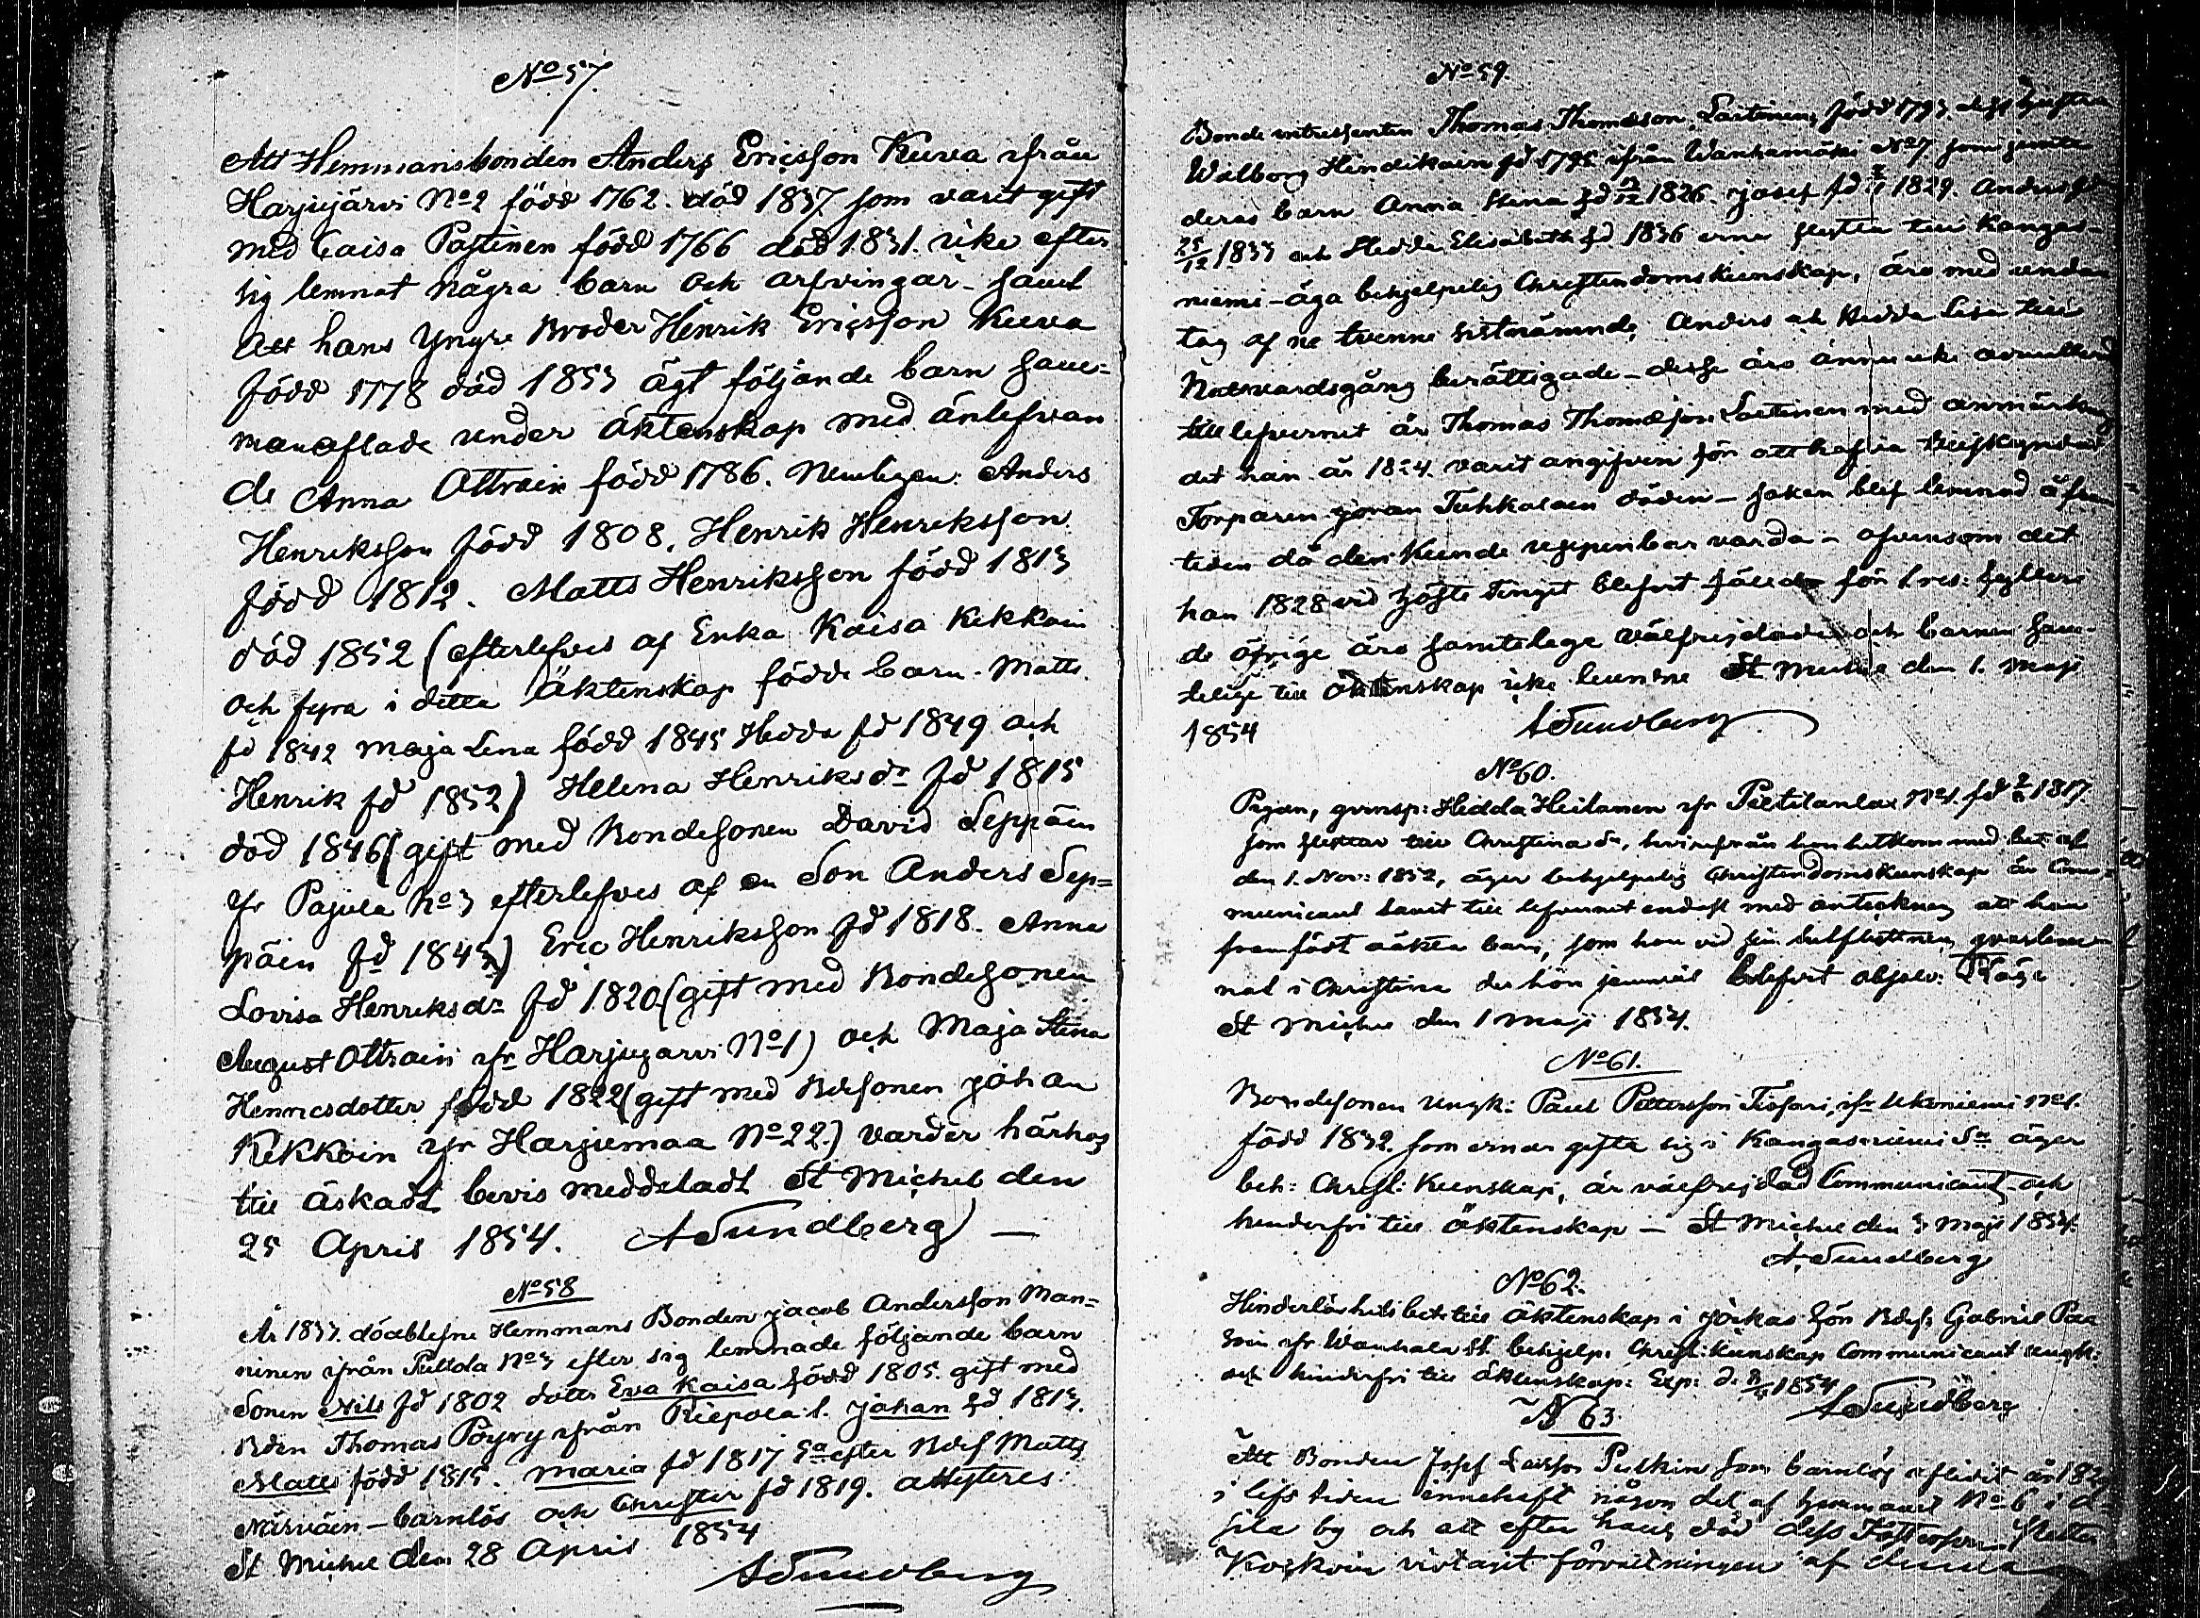 No 57.
Att Hemmansbonden Anders Ericsson Kuva ifrån
Harjujärvi No 2 född 1762. död 1837. som varit gift
med Caisa Pastinen född 1766 död 1831. icke efter
sig lemnat några barn och arfvingar - samt
Att hans Yngre Broder Henrik Ericsson Kuva
född 1778 död 1853 ägt följande barn sam=
manaflade under äktenskap med änlefvan
de Anna Ottrain född 1786. Nemligen: Anders
Henriksson född 1808. Henrik Henriksson
född 1812. Matts Henriksson född 1813
död 1852 (efterlefves af Enka Kaisa Kekkoin
och fyra i detta Äktenskap födde barn. Matts
fd 1842 Maja Lena född 1845 Hedda fd 1849 och
Henrik fd 1852) Helena Henriksdr fd 1815
död 1846 (gift med Bondesonen David Seppäin
ifr Pajula No 3 efterlefves af en Son Anders Sep=
päin fd 1845) Eric Henriksson fd 1818. Anna
Lovisa Henriksdr fd 1820 (gift med Bondesonen
August Ottrain ifr Harjujarvi No 1) och Maja Stina
Henricsdotter född 1822 (gift med Bdesonen Johan
Kekkoin ifr Harjumaa No 22.) varder härhos
till äskadt bevis meddeladt St Michel den
25 April 1854. A Sundberg
No 58
År 1833. dödblefne Hemmans Bonden Jacob Andersson Man=
ninen ifrån Pullola No 3 efter sig lemnade följande barn
Sonen Nils fd 1802 dotter Eva Kaisa född 1805. gift med
Bden Thomas Pöyry ifrån Riepola 1. Johan fd 1813.
Matts född 1815. Maria fd 1817 Ea efter Bdes Matts
Närväin - barnlös och Christer fd 1819. attesteres
St Michel den 28 April 1854
A Sundberg
No 59
Bonde Thomas Thomasson Laitinen, född 1793. dess hustru
Walborg Hendikain fd 1795 ifrån Wanhamäki No 7 som jemte
deras barn Anna Stina fd 1826. Josef fd 1829. Anders fd
25/12 1833 och Hedda Elisabeth fd 1836 ärna flytta till Kangas-
niemi - äga behjelpelig Christendomskunskap, äro med undan
tag af ne tvenne sistnämnde, Anders och Hedda Lisa till
Nattvardsgång berättigade - desse äro ännu icke admitterad
till lefvernet är Thomas Thomasson Laitinen med anmärkng
det han år 1824 varit angifven för att hafva
Torparen Göran Tuhkalaen döden - saken blef lemnad å fram
tiden då den kunde uppenbar varda - afvensom det
han 1828 vid höste Tinget blefvit fälld för 1 res: fylleri
de öfrige äro samtelage välfrejdade och barnen sam-
telige till äktenskap icke St Michel den 1. Maji
1854 A Sundberg
No 60.
Pigan, qvinsp: Hedda Heilanen ifr No 1. fd 1817.
som flyttar till Christina Sn, hvarifrån hon hitkom med bet af
den 1. Nov: 1852, äger behjelpelig Christendomskunskap är Com=
municant samt till lefvernet endast med anteckning att hon
framfödt oäkta barn, som hon vid sin hitflyttning qvarlem=
nat i Christina der hon jemväl blifvit absolv:
St Michel den 1 Maji 1854.
No 61.
Bondesonen Ungk: Paul Pettersson ifr Ukoniemi No 1.
född 1832. som ernar gifta sig i Kangasniemi Sn äger
beh: Christ: kunskap, är välfrejdad Communicant och
hinderfri till äktenskap - St Michel den 3 Maji 1854.
A. Sundberg
No 62.
Hinderlöshets bet: till äktenskap i Jockas för Bdes: Gabriel
ifr Wanhala behjelp. Christ: kunskap Communicant ungk:
och hinderfri till äktenskap: Exp: d. 1854
A Sundberg
N 63.
Att Bonden Josef Larsson Pulkin som barnlös aflidit år
i lifstiden innehaft någon del af hemmanet No 6 i
by och att efter hans död dess
Koskoin vidtagit förvaltningen af